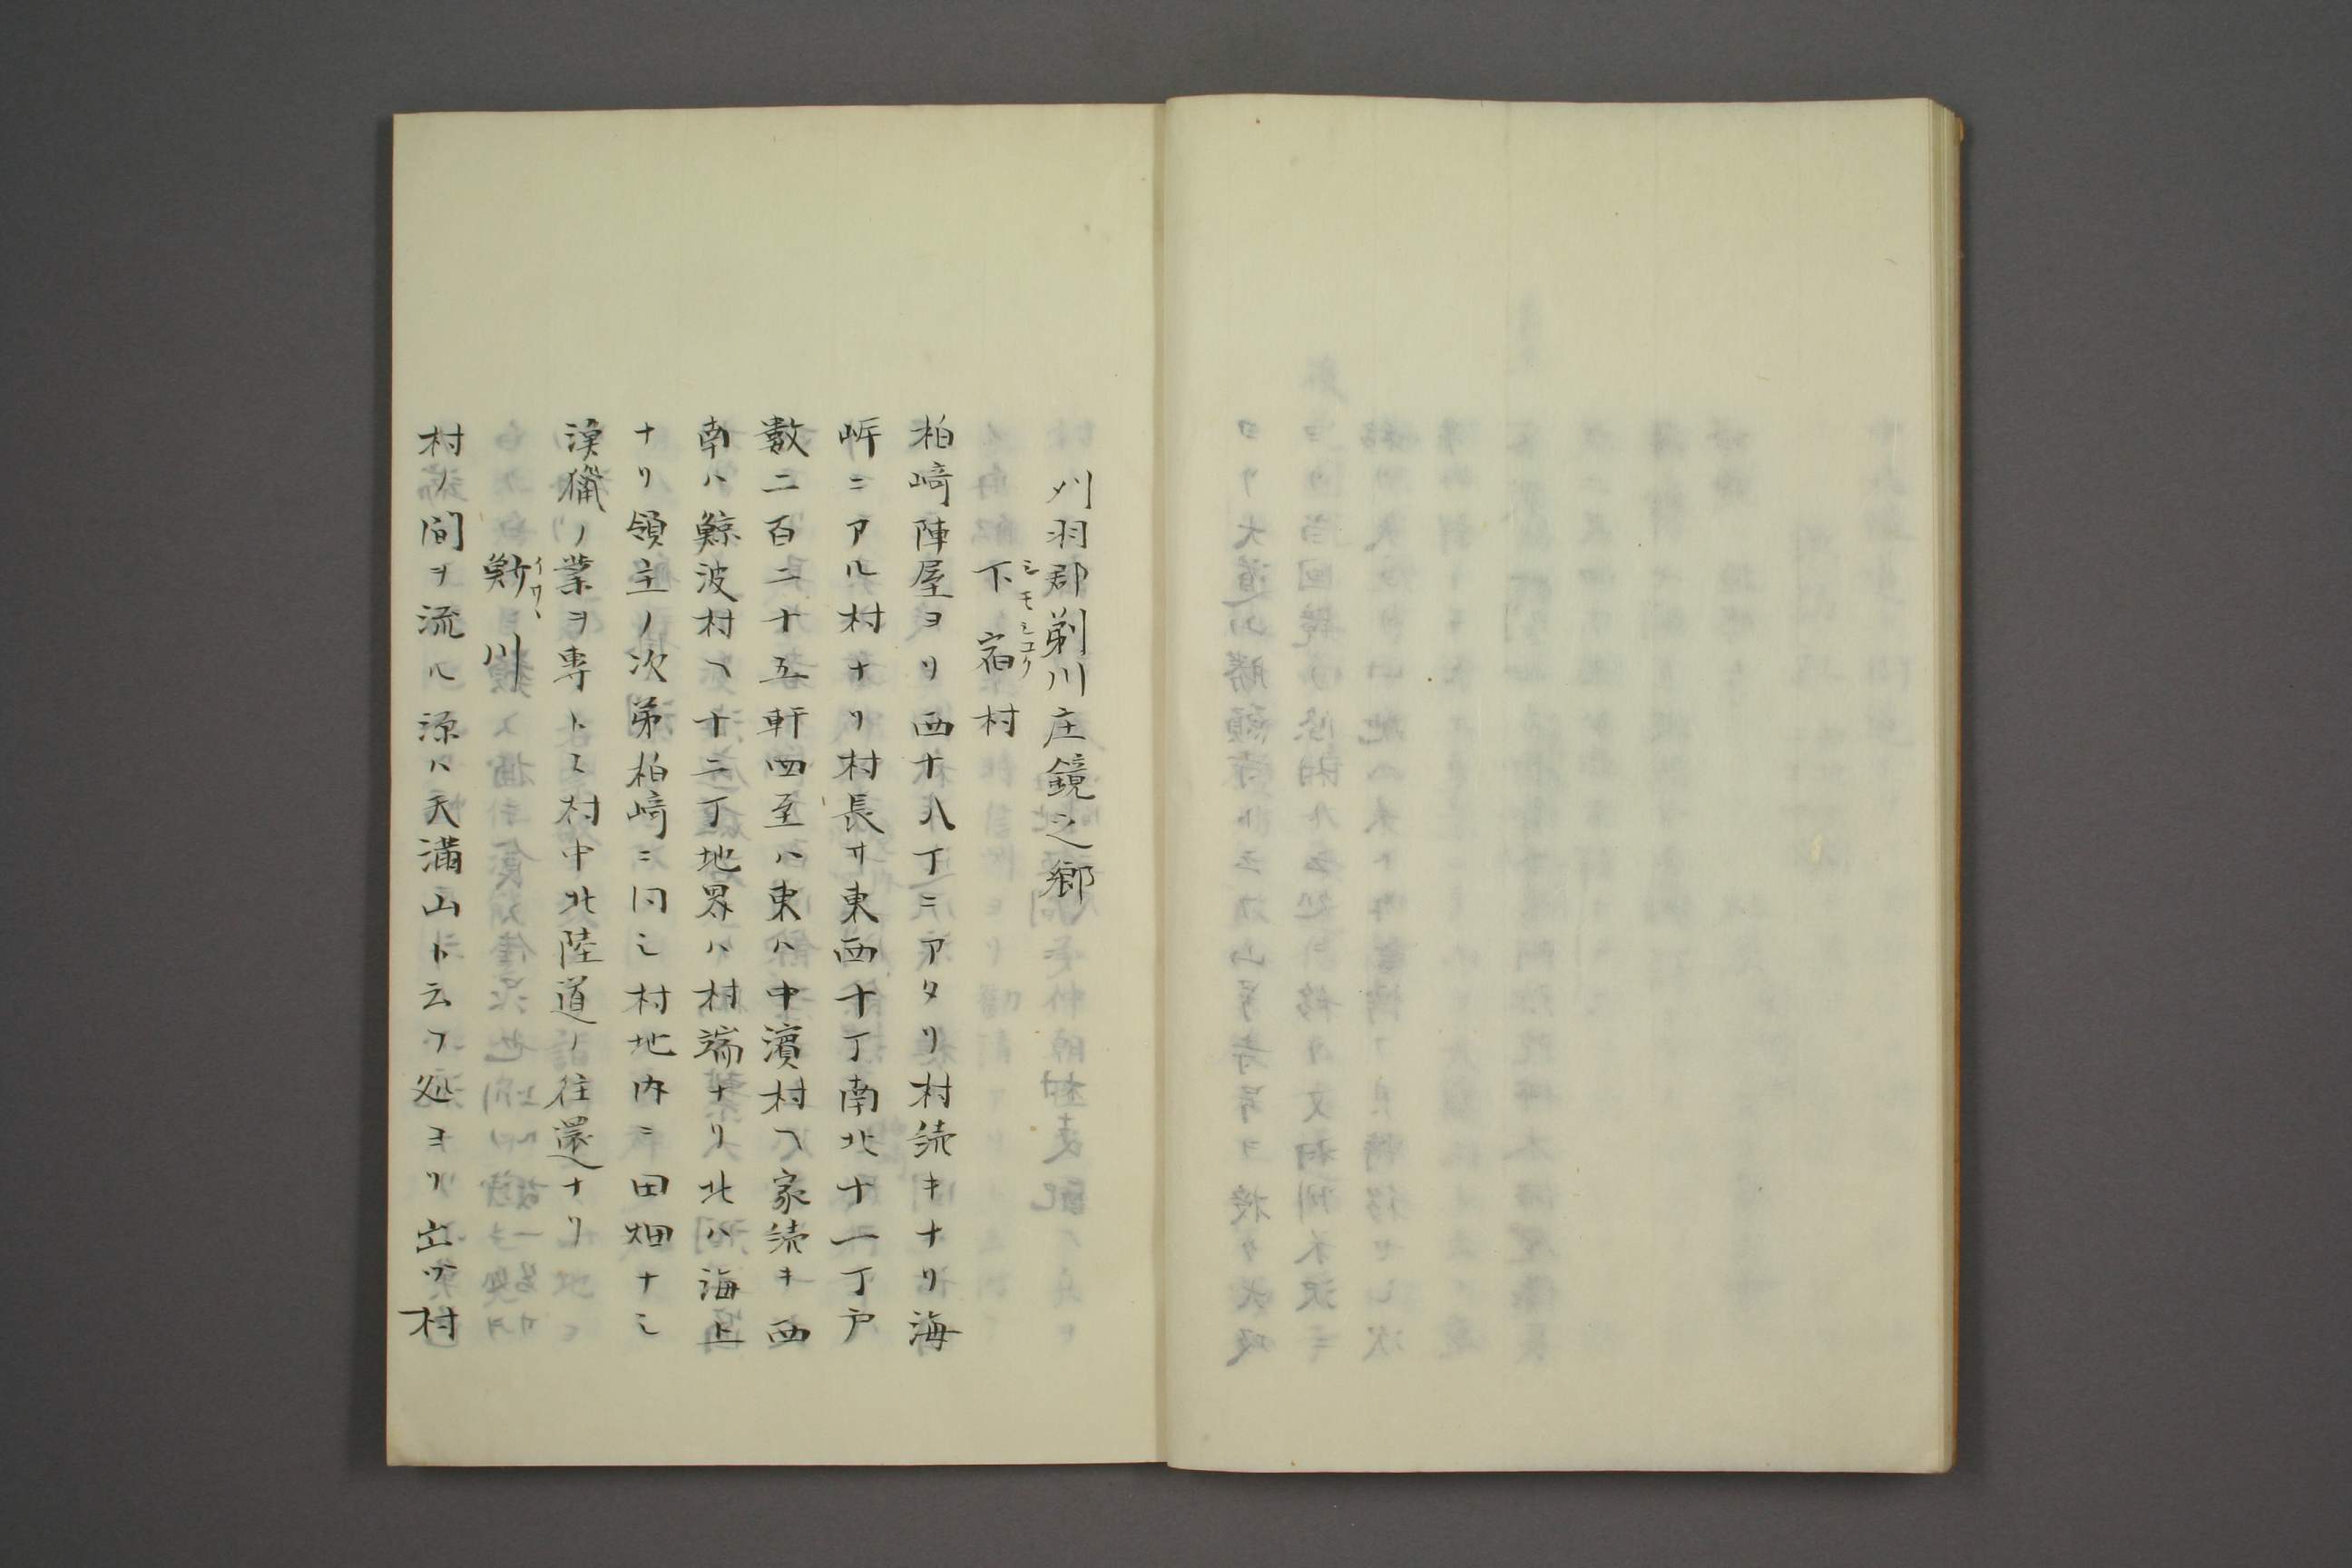 刈羽郡剃川庄鏡之郷
下宿村
シモシユク
柏﨑陣屋ヨリ西十八丁ニアタリ村続キナリ海
岍ニアル村ナリ村長サ東西十丁南北十一丁戸
数二百二十五軒四至ハ東ハ中濱村ヘ家続キ西
南ハ鯨波村ヘ十二丁地界ハ村端ナリ北ハ海上
ナリ領主ノ次第柏﨑ニ同シ村地内ニ田畑ナシ
漁獵ノ業ヲ専トス村中北陸道ノ往還ナリ
川
村ノ間ヲ流ル源ハ天満山ト云フ処ヨリ出ヅ村